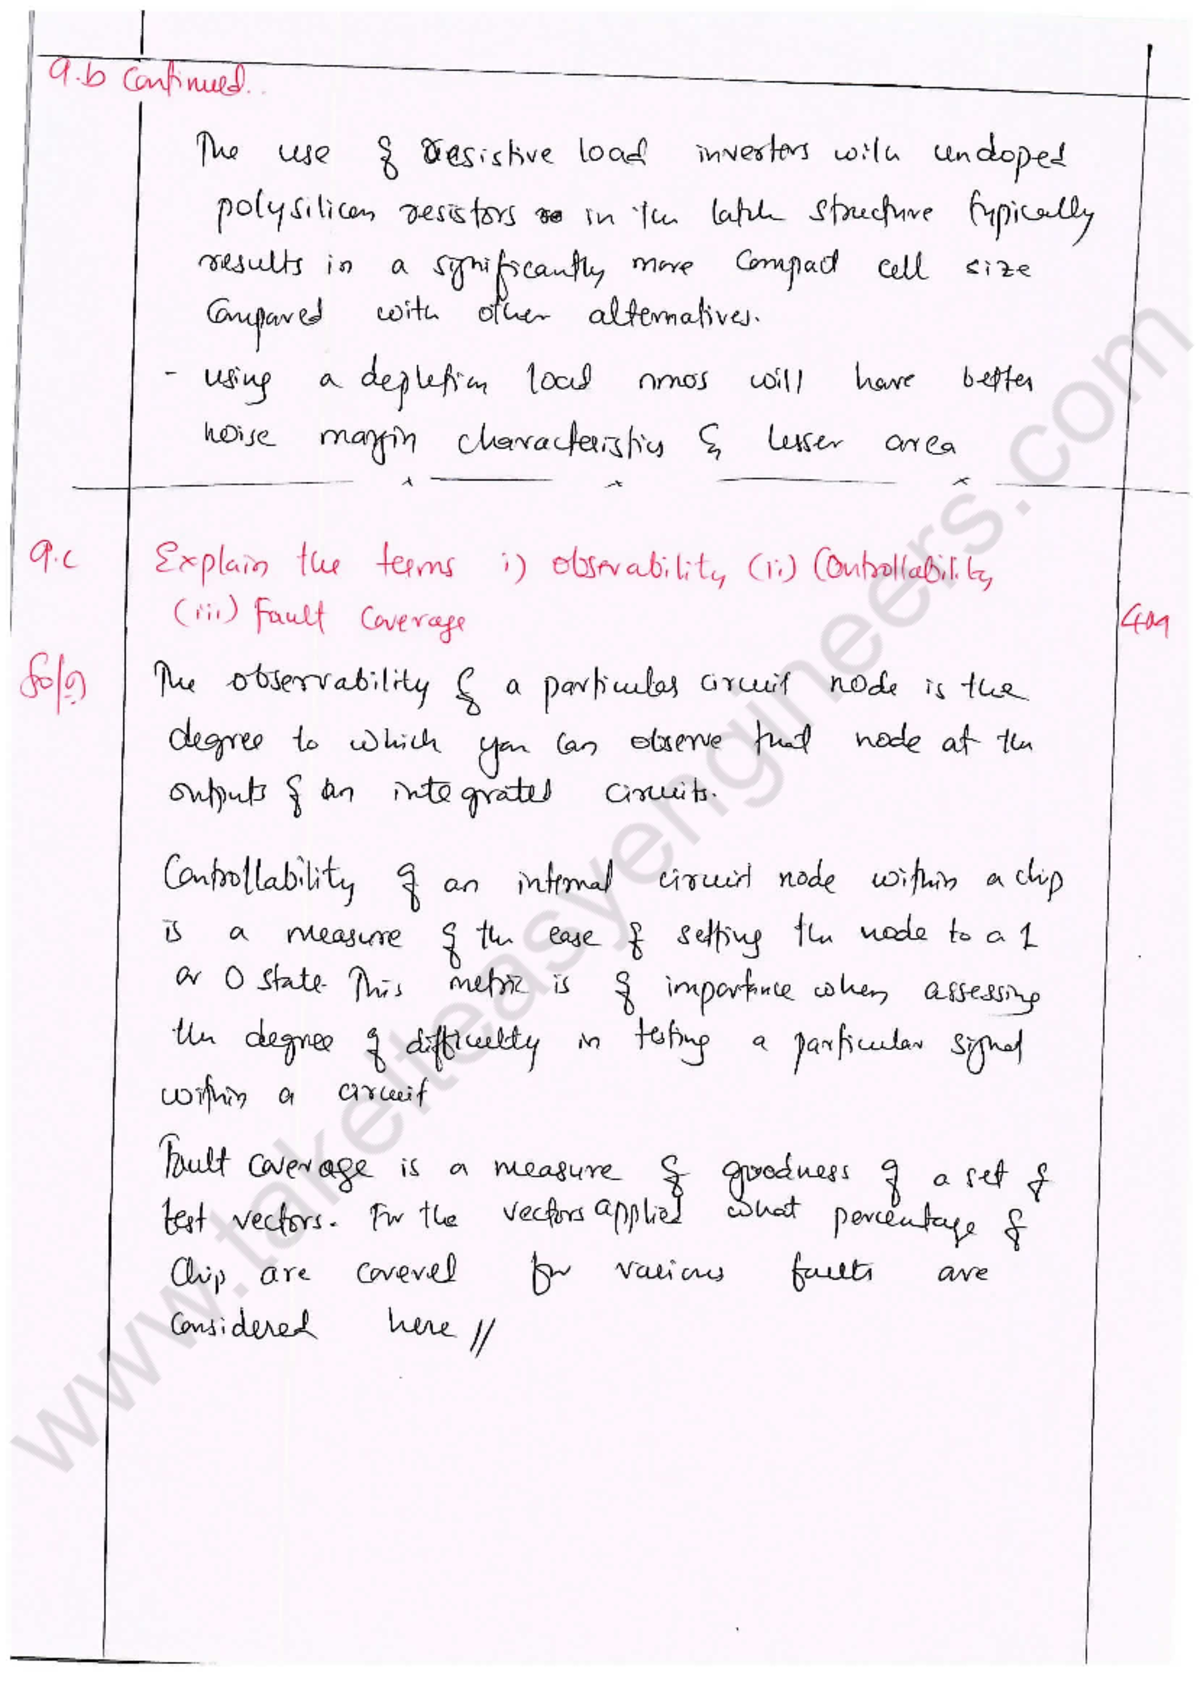 9.b Continued..
The use of resistive load invertors with undoped
polysilicon resistors in the latch structure typically
results in a significantly more compact cell size
Compared with other alternatives.
- using a depletion load nmos will have better
noise margin characteristics & lesser area
9.c Explain the terms i) observability (ii) Controllability
(iii) Fault Coverage
Soln The observability of a particular circuit node is the
degree to which you can observe that node at the
outputs of an integrated circuits.
Controllability of an internal circuit node within a chip
is a measure of the ease of setting the node to a 1
or 0 state. This metric is of importance when assessing
the degree of difficulty in testing a particular signal
within a circuit
Fault coverage is a measure of goodness of a set of
test vectors. For the vectors applied what percentage of
Chip are covered for various faults are
Considered here //
www.takeiteasyengineers.com